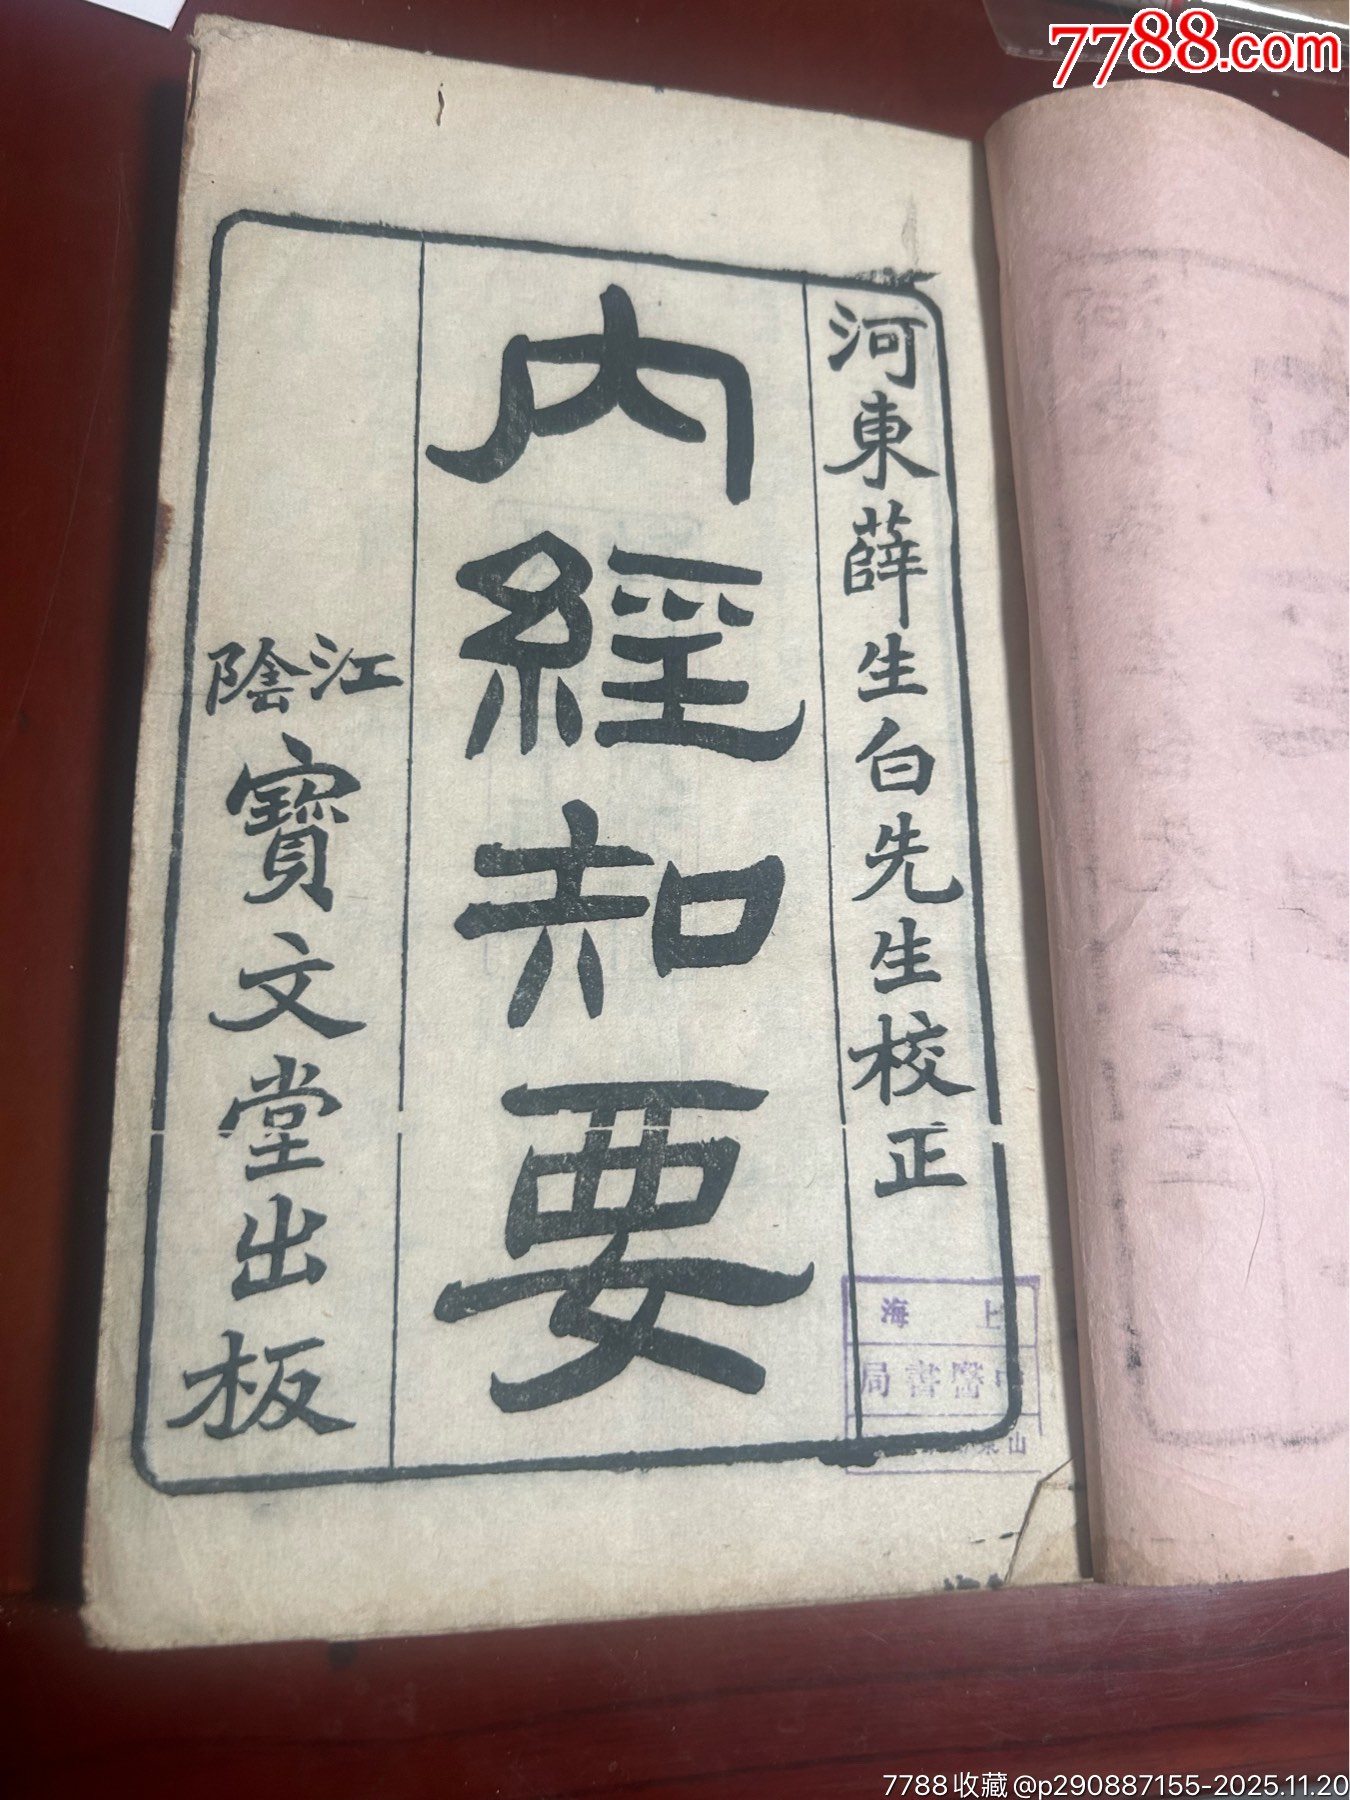 7788.com
河東薛生白先生校正
內經知要
江陰
寶文堂出板
上海
中醫書局
7788收藏@p290887155-2025.11.20